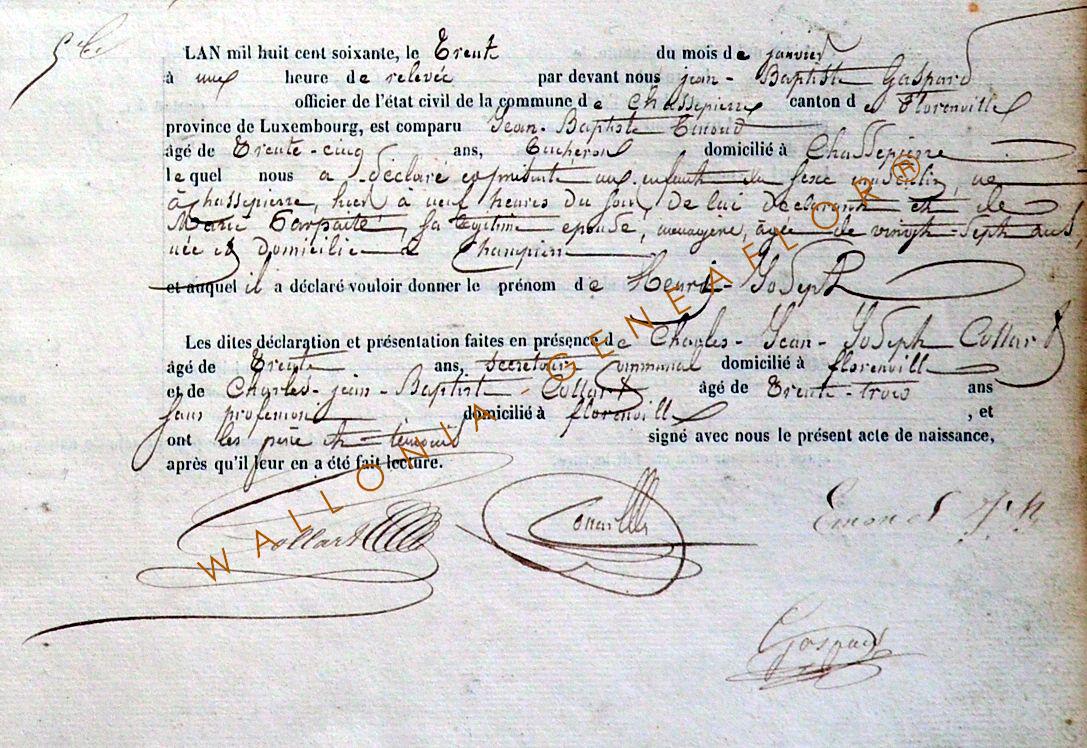 5me
LAN mil huit cent soixante, le Trente du mois de janvier
à une heure de relevée par devant nous jean-Baptiste Gaspard
officier de l'état civil de la commune de Chassepierre canton de Florenville
province de Luxembourg, est comparu Jean-Baptiste
âgé de Trente-cinq ans, Bucheron domicilié à Chassepierre
lequel nous a déclaré et présenté un enfant du sexe masculin, né
à Chassepierre, hier à neuf heures du soir, de lui déclarant et de
Marie Parfaite, sa légitime épouse, ménagère, âgée de vingt-sept ans,
née et domiciliée à
et auquel il a déclaré vouloir donner le prénom de Henri-Joseph
Les dites déclaration et présentation faites en présence de Charles-Jean-Joseph Collard
âgé de Trente ans, secrétaire Communal domicilié à florenville
et de Charles-jean-Baptiste Collart âgé de Trente-trois ans
sans profession domicilié à florenville , et
ont les père et témoins signé avec nous le présent acte de naissance,
après qu'il leur en a été fait lecture.
Collart
Gaspard
WALLONIA-GENEAELOR®